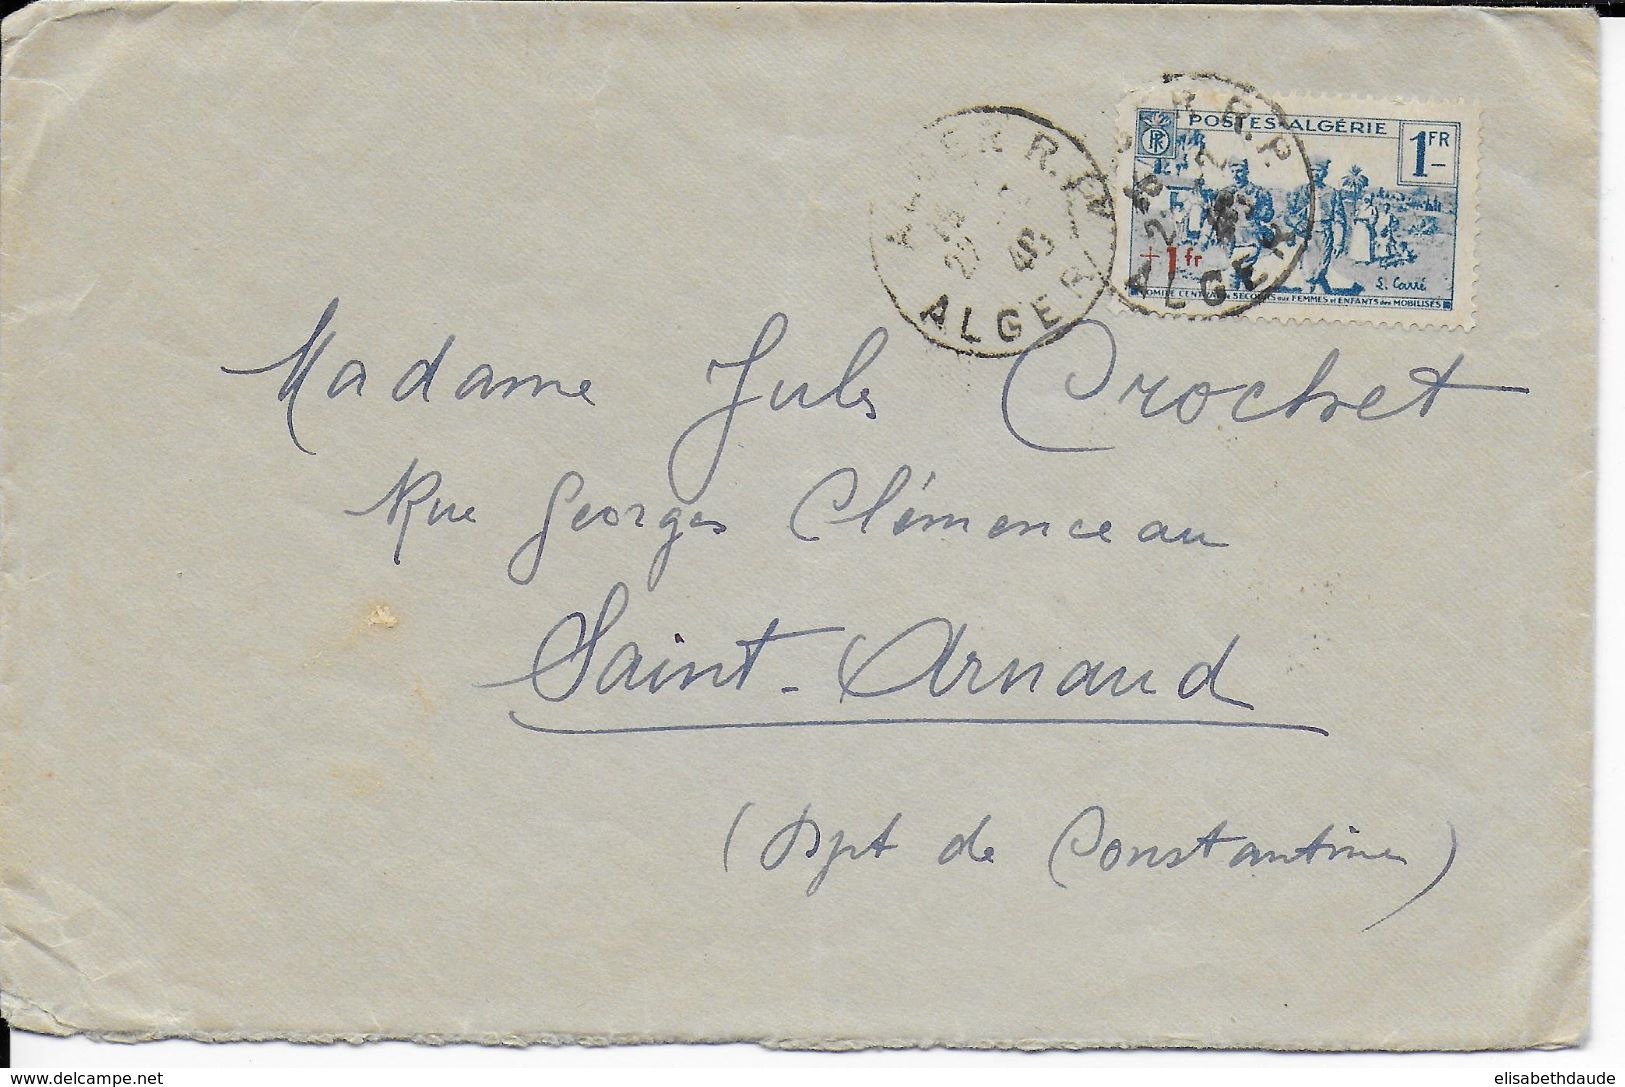 POSTES ALGÉRIE
1 FR
RF
+1 fr
L. Carré
COMITÉ CENTRAL SECOURS aux FEMMES et ENFANTS des MOBILISÉS
ALGER R.P.
ALGER
R.P.
ALGER
Madame Jules Crochet
Rue Georges Clémenceau
Saint-Arnaud
(Dpt de Constantine)
www.delcampe.net
elisabethdaude